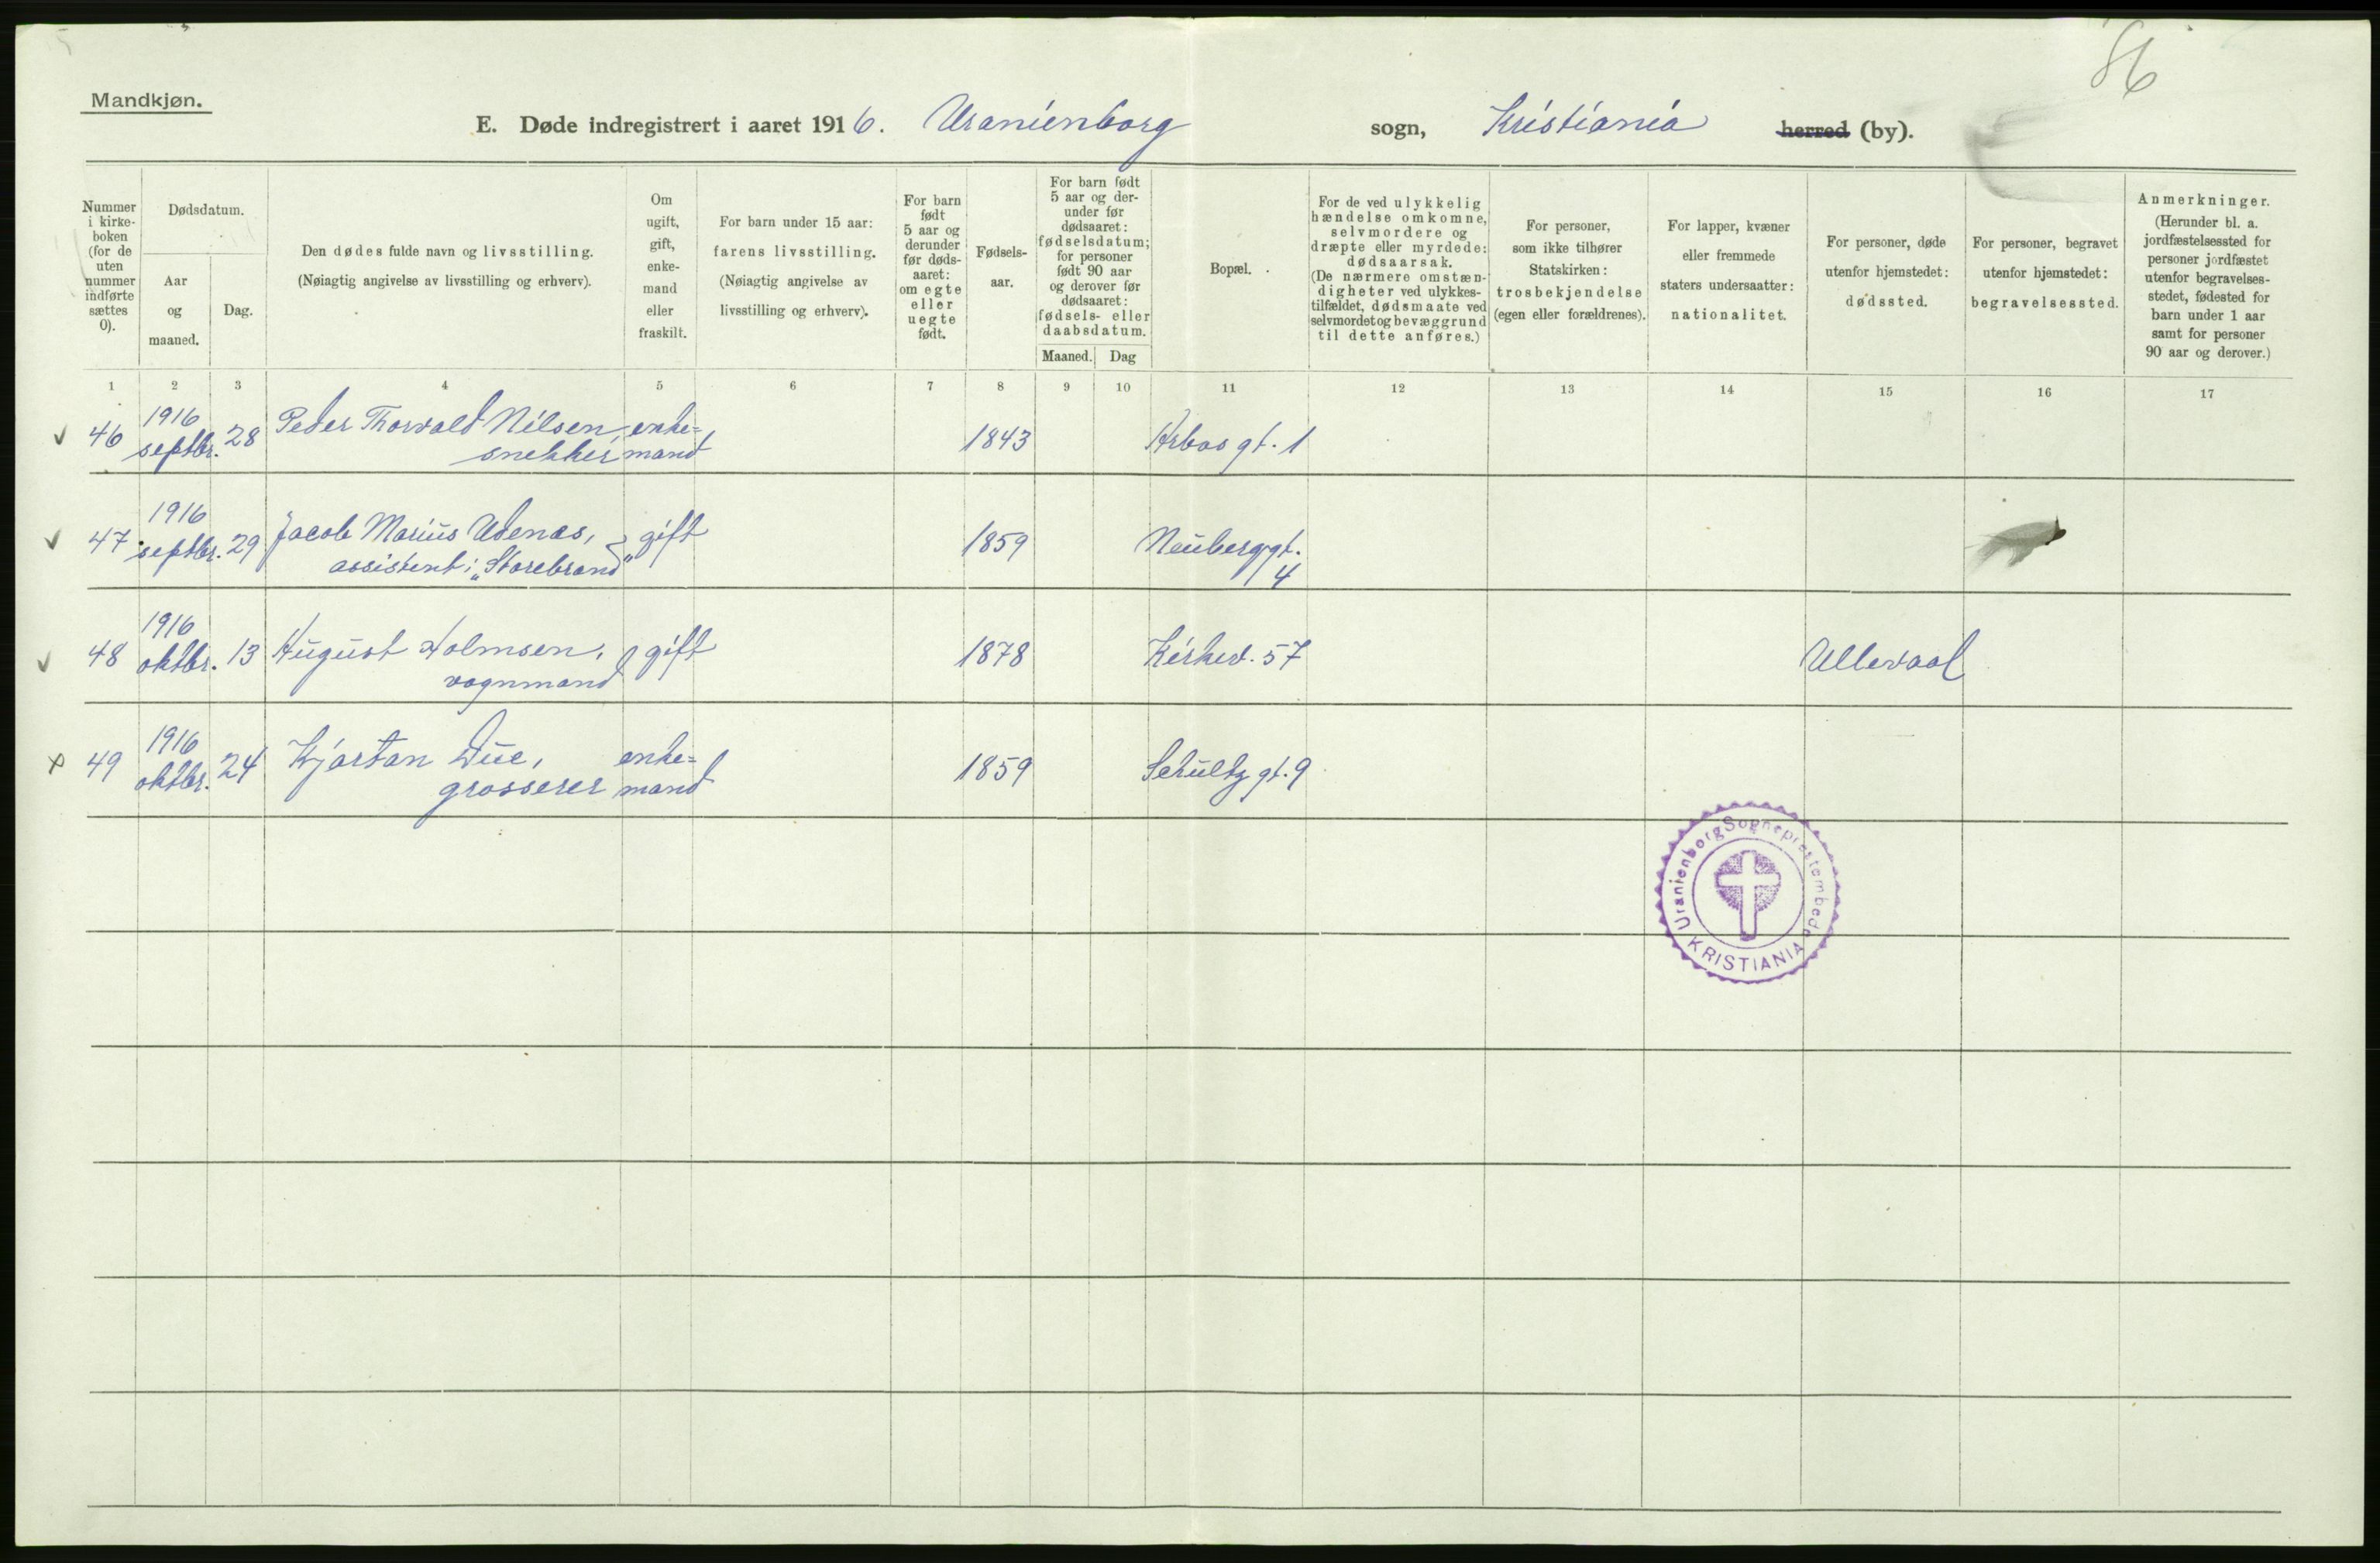 86
Mandkjøn.
E. Døde indregistrert i aaret 1916. Uranienborg sogn, Kristiania herred (by).
Nummer
i kirke-
boken
(for de
uten
nummer
indførte
sættes
0).
Dødsdatum.
Aar
og
maaned.
Dag.
Den dødes fulde navn og livsstilling.
(Nøiagtig angivelse av livsstilling og erhverv).
Om
ugift,
gift,
enke-
mand
eller
fraskilt.
For barn under 15 aar:
farens livsstilling.
(Nøiagtig angivelse av
livsstilling og erhverv).
For barn
født
5 aar og
derunder
før døds-
aaret:
om egte
eller
uegte
født.
Fødsels-
aar.
For barn født
5 aar og der-
under før
dødsaaret:
fødselsdatum;
for personer
født 90 aar
og derover før
dødsaaret:
fødsels- eller
daabsdatum.
Maaned. Dag
Bopæl.
For de ved ulykkelig
hændelse omkomne,
selvmordere og
dræpte eller myrdede:
dødsaarsak.
(De nærmere omstæn-
digheter ved ulykkes-
tilfældet, dødsmaate ved
selvmordet og bevæggrund
til dette anføres.)
For personer,
som ikke tilhører
Statskirken:
trosbekjendelse
(egen eller forældrenes).
For lapper, kvæner
eller fremmede
staters undersaatter:
nationalitet.
For personer, døde
utenfor hjemstedet:
dødssted.
For personer, begravet
utenfor hjemstedet:
begravelsessted.
Anmerkninger.
(Herunder bl. a.
jordfæstelsessted for
personer jordfæstet
utenfor begravelses-
stedet, fødested for
barn under 1 aar
samt for personer
90 aar og derover.)
1 2 3 4 5 6 7 8 9 10 11 12 13 14 15 16 17
1916
46 septbr. 28 Peder Thorvald Nilsen, enke= 1843 Arbos gt. 1
snekker mand
1916
47 septbr. 29 Jacob Marius Udenæs, gift 1859 Neuberggt.
assistent i „Storebrand" 4
1916
48 oktbr. 13 August Holmsen, gift 1878 Kirkev. 57 Ullevaal
vognmand
1916
49 oktbr. 24 Kjartan Due, enke= 1859 Schultz gt. 9
grosserer mand
Uranienborg Sogneprestembede
KRISTIANIA